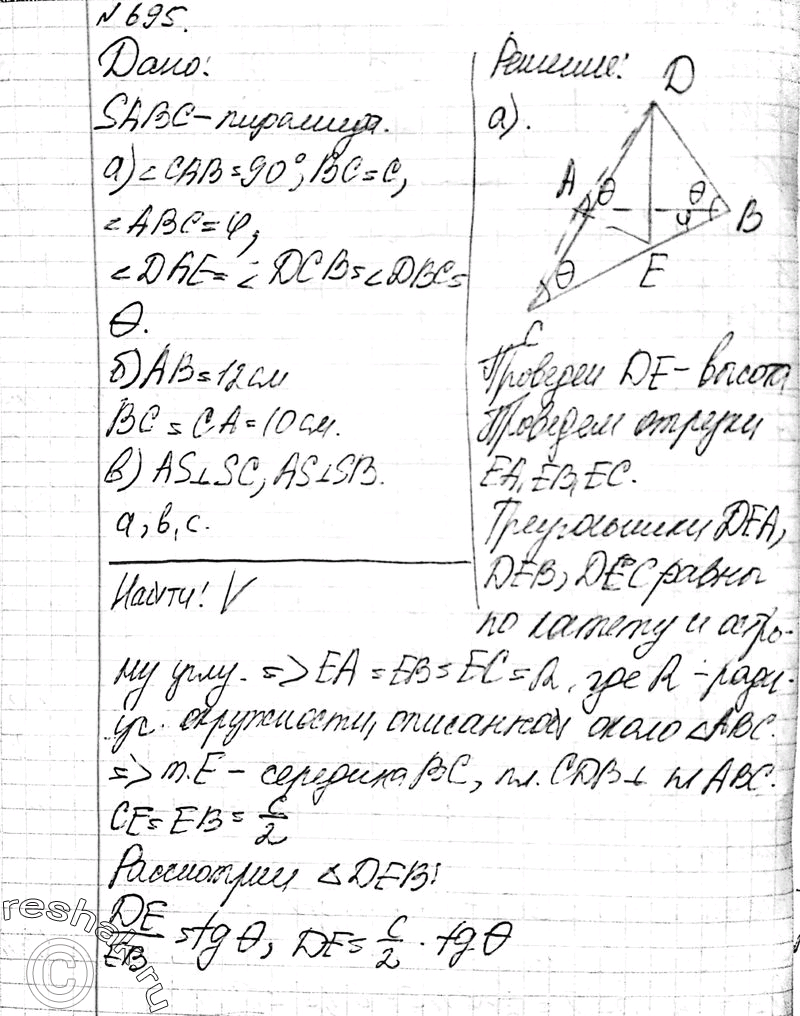 №695.
Дано:
SABC-пирамида.
а)∠CAB=90°, BC=c,
∠ABC=φ,
∠DAE=∠DCB=∠DBC=
θ.
б)AB=12см
BC=CA=10см.
в)AS⊥SC, AS⊥SB.
a, b, c.
Найти: V
Решение:
а).
D
A θ θ
φ B
θ E
C
Проведем DE-высота
Проведем отрезки
EA, EB, EC.
Треугольники DEA,
DEB, DEC равны
по катету и остро-
му углу. => EA=EB=EC=R, где R-ради-
ус окружности, описанной около ∆ABC.
=> т.E-середина BC, пл.CDB⊥ пл ABC.
CE=EB=c/2
Рассмотрим ∆DEB:
DE/EB=tgθ, DE=c/2·tgθ
reshak.ru
©